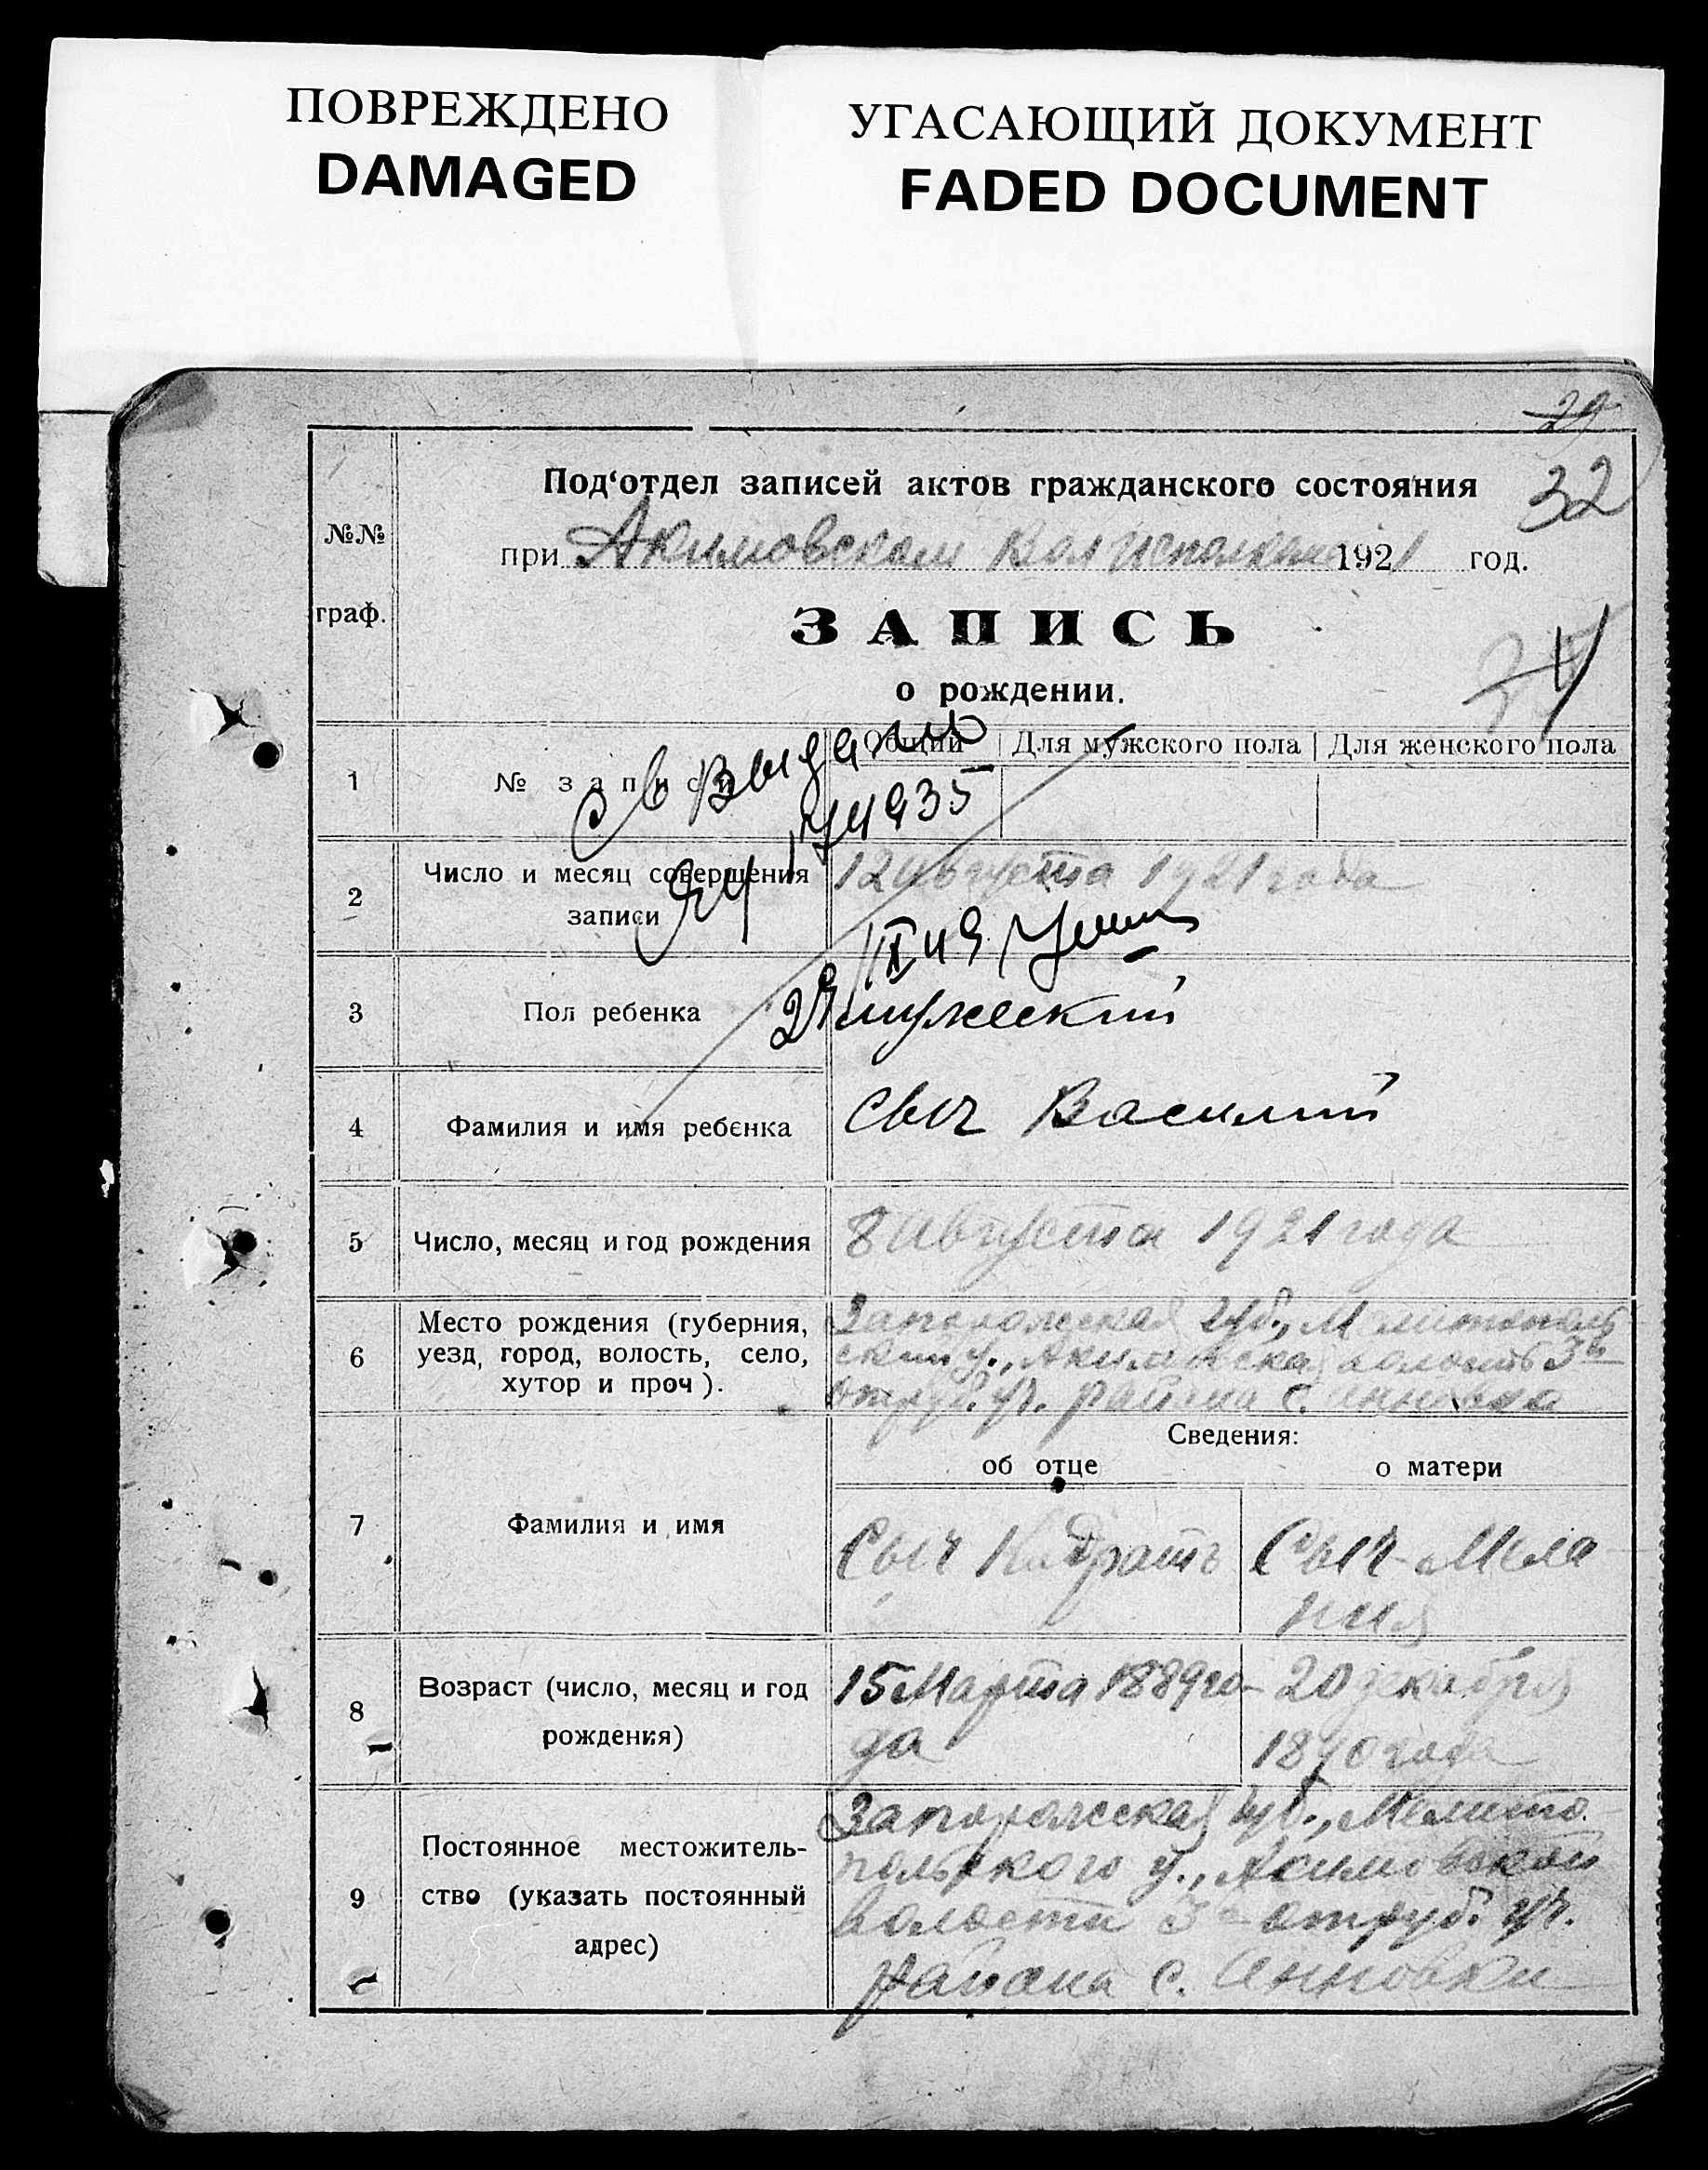 ПОВРЕЖДЕНО
DAMAGED
УГАСАЮЩИЙ ДОКУМЕНТ
FADED DOCUMENT
29
32
№№
граф.
Под‘отдел записей актов гражданского состояния
при Акимовском Волисполкоме 1921 год.
ЗАПИСЬ
о рождении.
Общий Для мужского пола Для женского пола
1 № записи
св Выдано
2 Число и месяц совершения
записи
12 августа 1921 года
3 Пол ребенка мужеский
4 Фамилия и имя ребенка Сыч Василий
5 Число, месяц и год рождения 8 августа 1921 года
6 Место рождения (губерния,
уезд, город, волость, село,
хутор и проч).
Запорожская губ., Мелитополь-
ский у., Акимовская волость 3й
отруб. уч. района с. Анновка
Сведения:
об отце о матери
7 Фамилия и имя
Сыч Кндратъ
Сыч Мела
ния
8 Возраст (число, месяц и год
рождения)
15 Марта 1889 го-
да
20 декабря
1890 года
9 Постоянное местожитель-
ство (указать постоянный
адрес)
Запорожская губ., Мелито-
польского у., Акимовской
волости 3й отруб. уч.
района с. Анновки